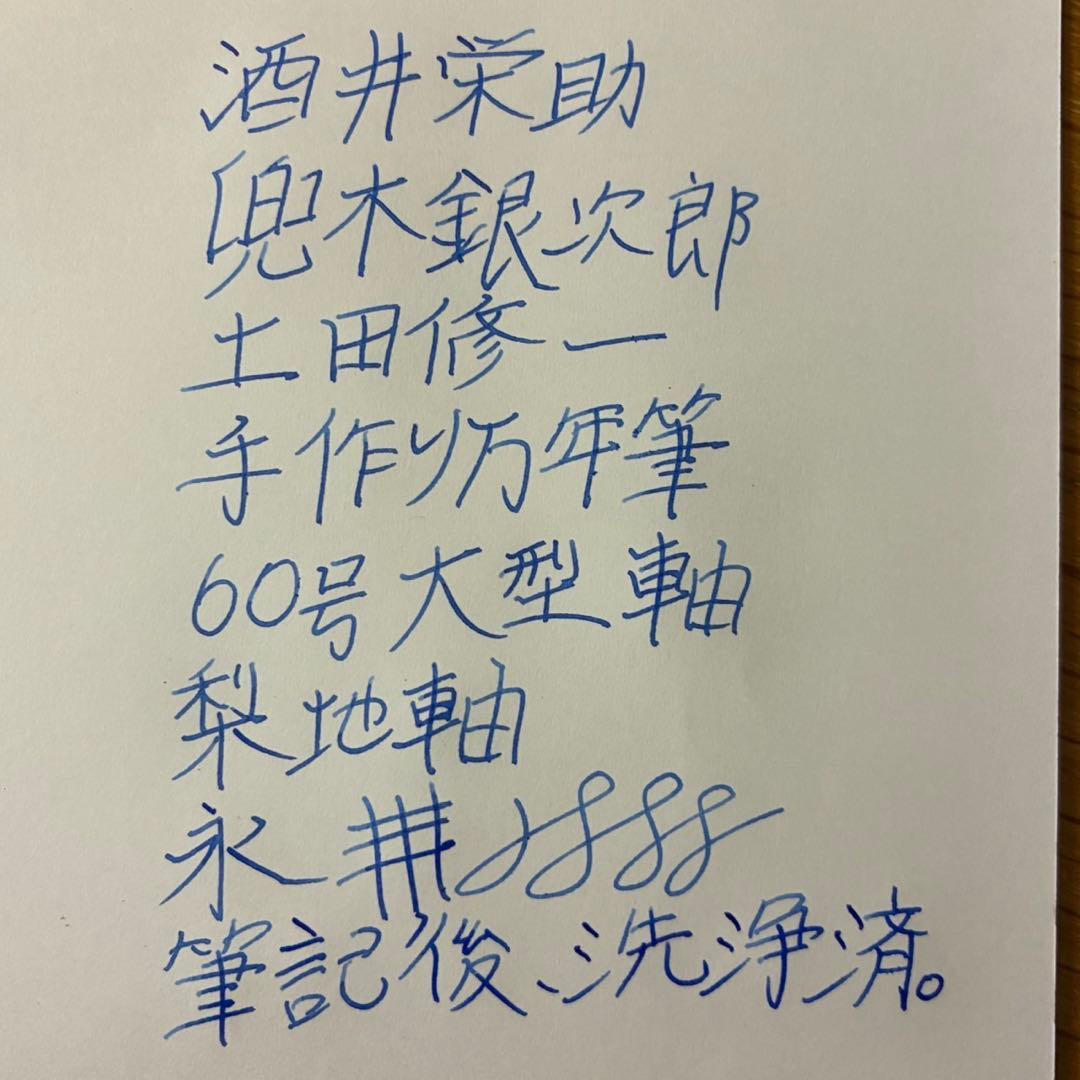 酒井栄助
兜木銀次郎
土田修一
手作り万年筆
60号大型軸
梨地軸
永
筆記後、洗浄済。